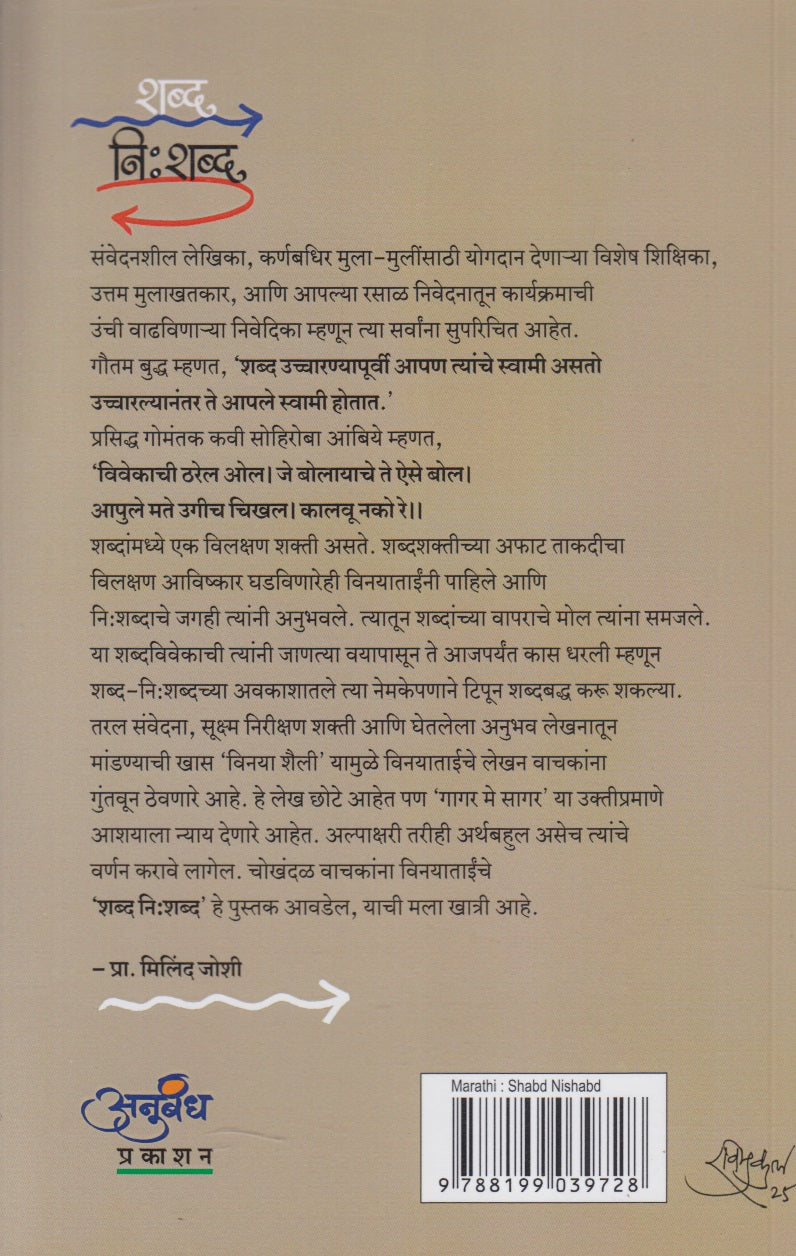 शब्द
नि:शब्द
संवेदनशील लेखिका, कर्णबधिर मुला-मुलींसाठी योगदान देणाऱ्या विशेष शिक्षिका,
उत्तम मुलाखतकार, आणि आपल्या रसाळ निवेदनातून कार्यक्रमाची
उंची वाढविणाऱ्या निवेदिका म्हणून त्या सर्वांना सुपरिचित आहेत.
गौतम बुद्ध म्हणत, ‘शब्द उच्चारण्यापूर्वी आपण त्यांचे स्वामी असतो
उच्चारल्यानंतर ते आपले स्वामी होतात.’
प्रसिद्ध गोमंतक कवी सोहिरोबा आंबिये म्हणत,
‘विवेकाची ठरेल ओल। जे बोलायाचे ते ऐसे बोल।
आपुले मते उगीच चिखल। कालवू नको रे।।
शब्दांमध्ये एक विलक्षण शक्ती असते. शब्दशक्तीच्या अफाट ताकदीचा
विलक्षण आविष्कार घडविणारेही विनयाताईंनी पाहिले आणि
नि:शब्दाचे जगही त्यांनी अनुभवले. त्यातून शब्दांच्या वापराचे मोल त्यांना समजले.
या शब्दविवेकाची त्यांनी जाणत्या वयापासून ते आजपर्यंत कास धरली म्हणून
शब्द-नि:शब्दच्या अवकाशातले त्या नेमकेपणाने टिपून शब्दबद्ध करू शकल्या.
तरल संवेदना, सूक्ष्म निरीक्षण शक्ती आणि घेतलेला अनुभव लेखनातून
मांडण्याची खास ‘विनया शैली’ यामुळे विनयाताईचे लेखन वाचकांना
गुंतवून ठेवणारे आहे. हे लेख छोटे आहेत पण ‘गागर मे सागर’ या उक्तीप्रमाणे
आशयाला न्याय देणारे आहेत. अल्पाक्षरी तरीही अर्थबहुल असेच त्यांचे
वर्णन करावे लागेल. चोखंदळ वाचकांना विनयाताईंचे
‘शब्द नि:शब्द’ हे पुस्तक आवडेल, याची मला खात्री आहे.
– प्रा. मिलिंद जोशी
अनुबंध
प्रकाशन
Marathi : Shabd Nishabd
9 788199 039728
रविमुकुल
25